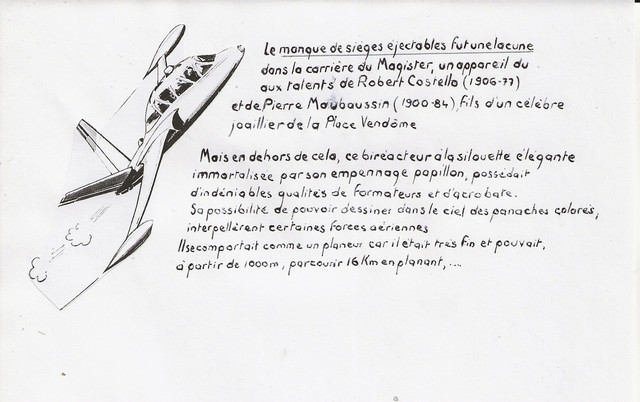 Le manque de sièges éjectables fut une lacune
dans la carrière du Magister, un appareil du
aux talents de Robert Costello (1906-77)
et de Pierre Mauboussin (1900-84), fils d'un célèbre
joaillier de la Place Vendôme
Mais en dehors de cela, ce biréacteur à la silouette élégante
immortalisée par son empennage papillon, possédait
d'indéniables qualités de formateurs et d'acrobate.
Sa possibilité de pouvoir dessiner dans le ciel des panaches colorés,
interpellèrent certaines forces aériennes
Il se comportait comme un planeur car il était très fin et pouvait,
à partir de 1000m, parcourir 16Km en planant,...